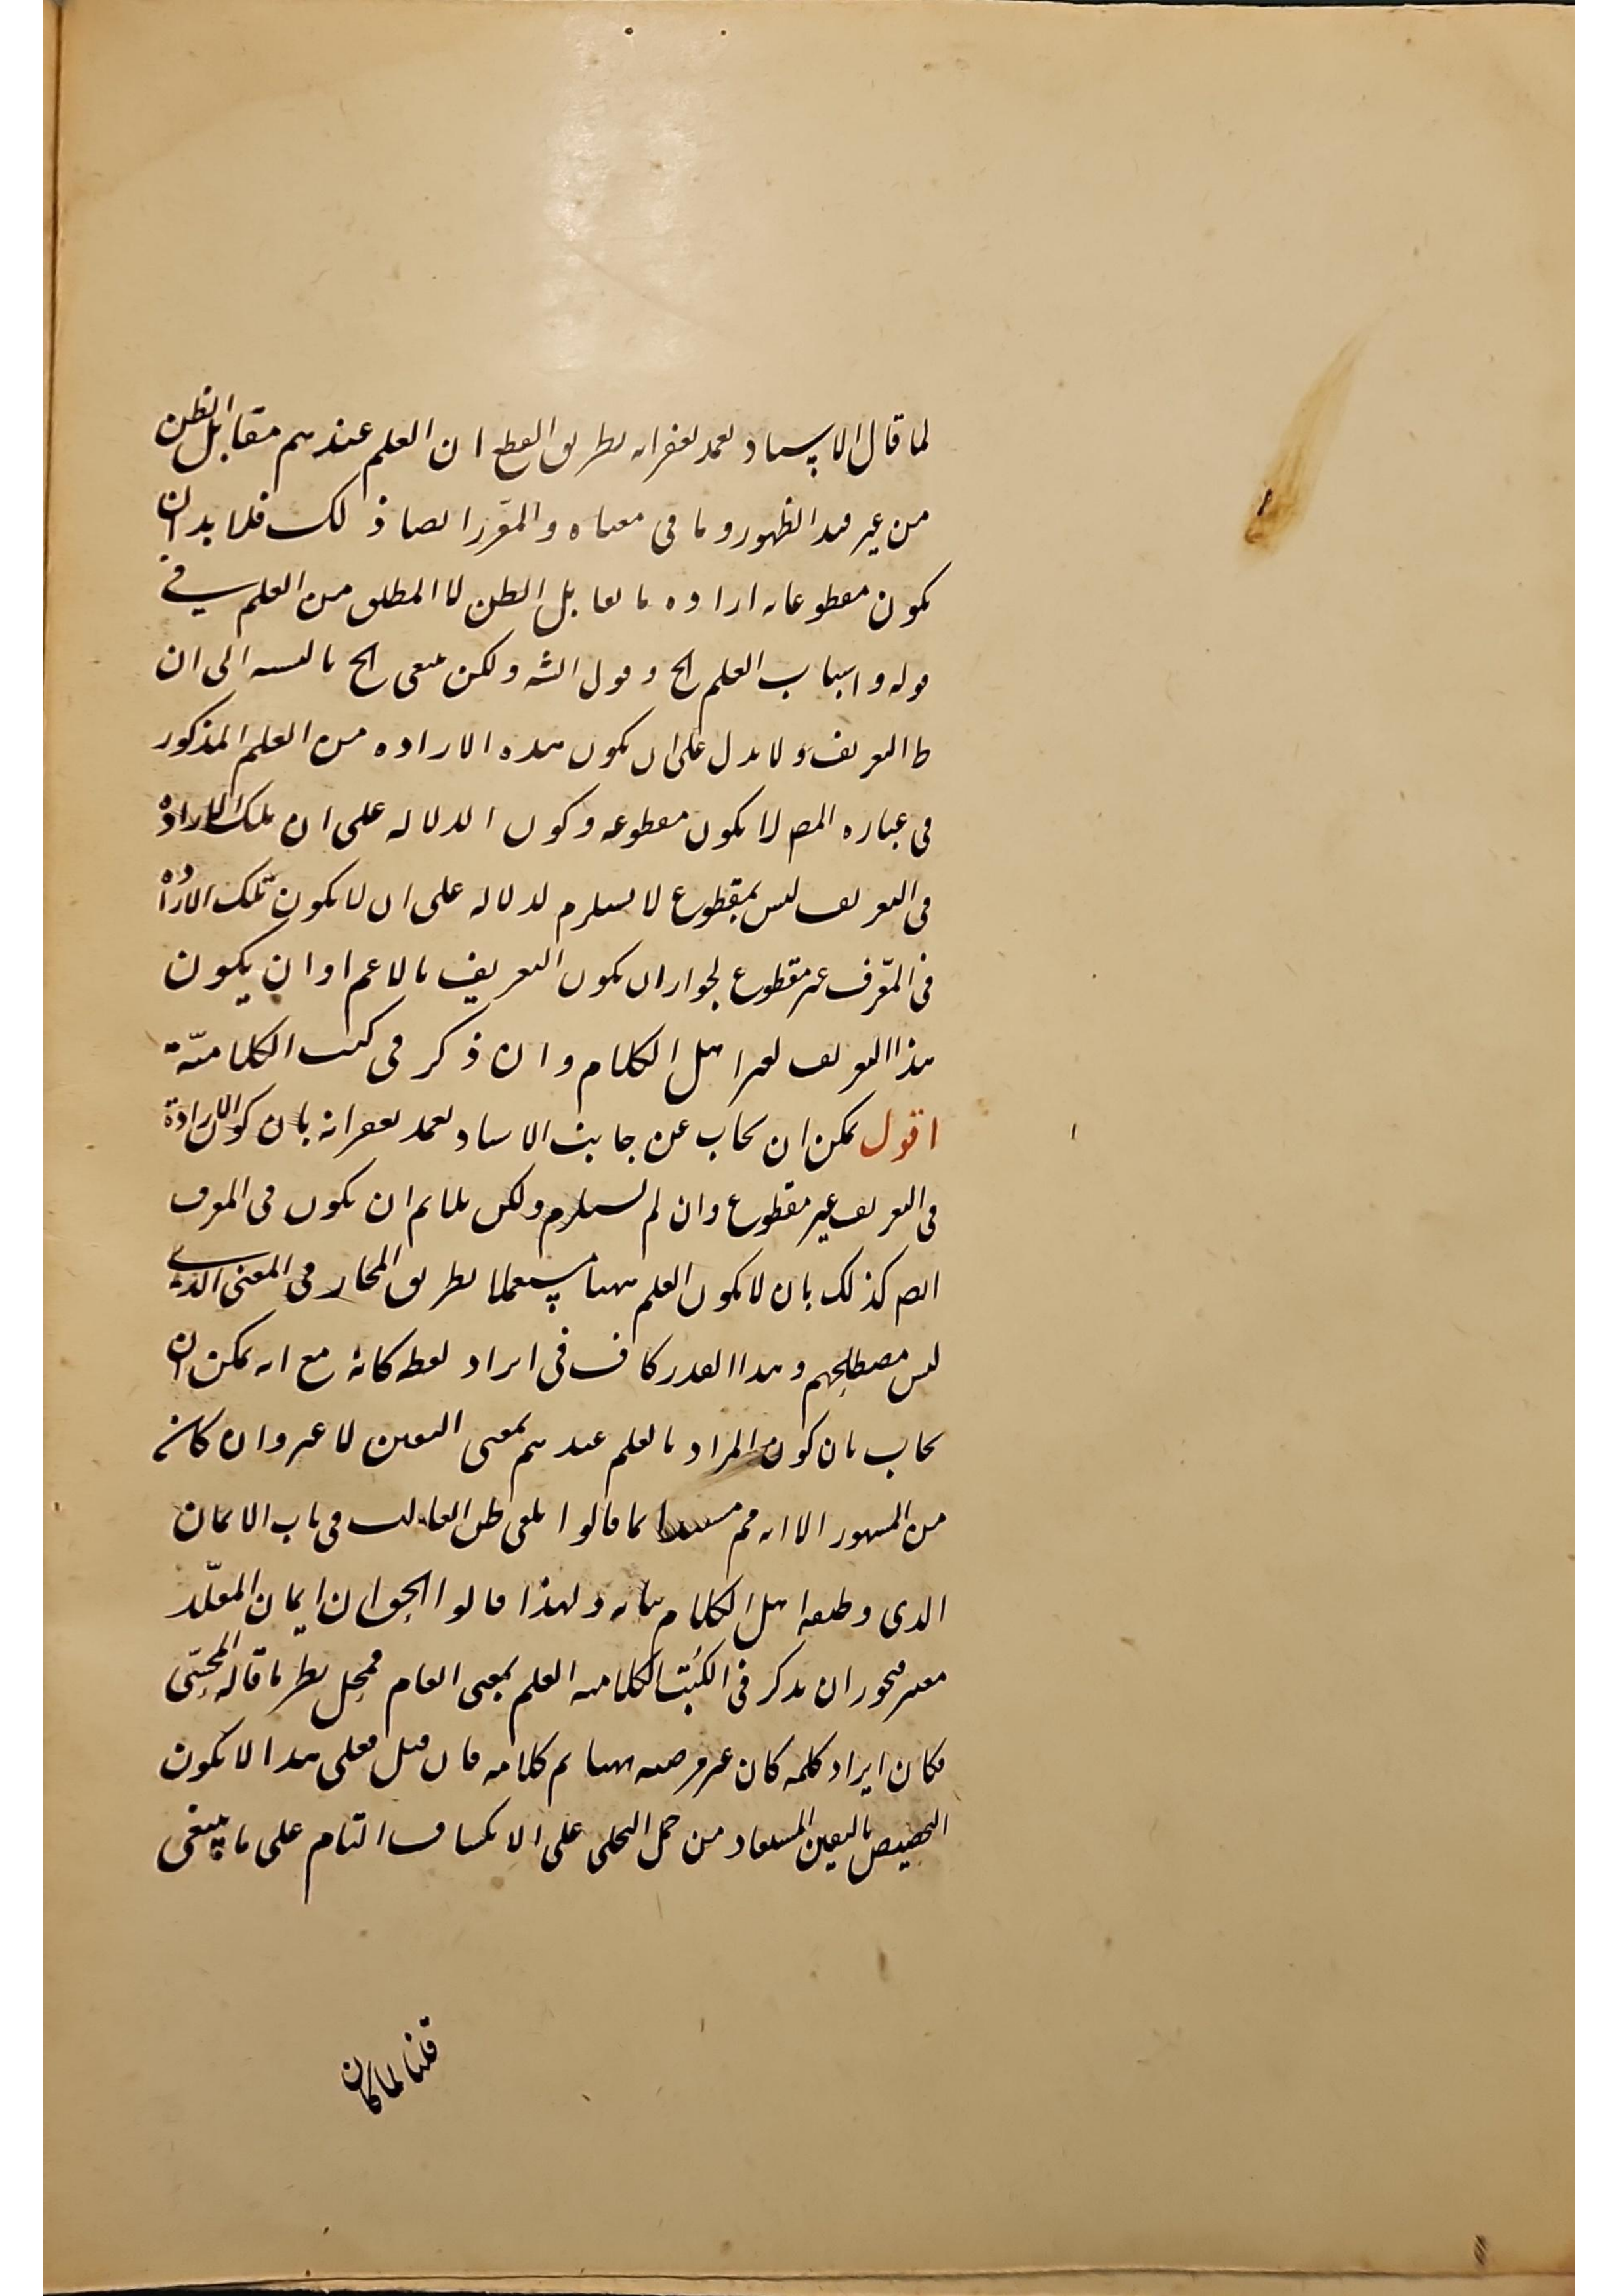 لما قال الاستاد تغمد بغفرانه بطريق القطع ان العلم عندهم مقابل الظن
من غير قيد الظهور وما فى معناه والمقرر ايضا ذلك فلا بد ان
يكون مقطوعا به ارادة ما يقابل الظن لا المطلق من العلم في
قوله واسباب العلم الخ وقول الشه ولكن ينبغى الخ بالنسبة الى ان
ط التعريف ولا يدل على ان يكون هذه الارادة من العلم المذكور
فى عبارة المصـ لا يكون مقطوعه وكون الدلالة على ان تلك الارادة
فى التعريف ليس بمقطوع لا يستلزم لدلالة على ان لا يكون تلك الارادة
فى المعّرف غير مقطوع لجواز ان يكون التعريف بالاعم او ان يكون
هذا التعريف لغير اهل الكلام وان ذكر فى كتب الكلاميّة
اقول يمكن ان يجاب عن جانب الاستاد تغمد بغفرانه بان كون الارادة
فى التعريف غير مقطوع وان لم يستلزم ولكن يلايم ان يكون فى المعرف
ايضـ كذلك بان لا يكون العلم ههنا مستعملا بطريق المجاز فى المعنى الذى
ليس مصطلحهم وهذا القدر كاف فى ايراد لفظه كانه مع انه يمكن ان
يجاب بان كون المراد بالعلم عندهم بمعنى اليقين لا غير وان كان
من المشهور الا انه قالوا يكفى ظن الغالب فى باب الايمان
الذى وظيفة اهل الكلام بيانه ولهذا قالوا الحق ان ايمان المقلّد
معتبر فيجوز ان يذكر فى الكتب الكلاميه العلم بمعنى العام فمحل نظر ما قاله المحشّى
فكان ايراد كلمه كان غير مرضيه ههنا تم كلامه فان قيل فعلى هذا لا يكون
التخصيص باليقين المستفاد من حمل التجلى على الانكشاف التام على ما ينبغى
قلنا لما كان